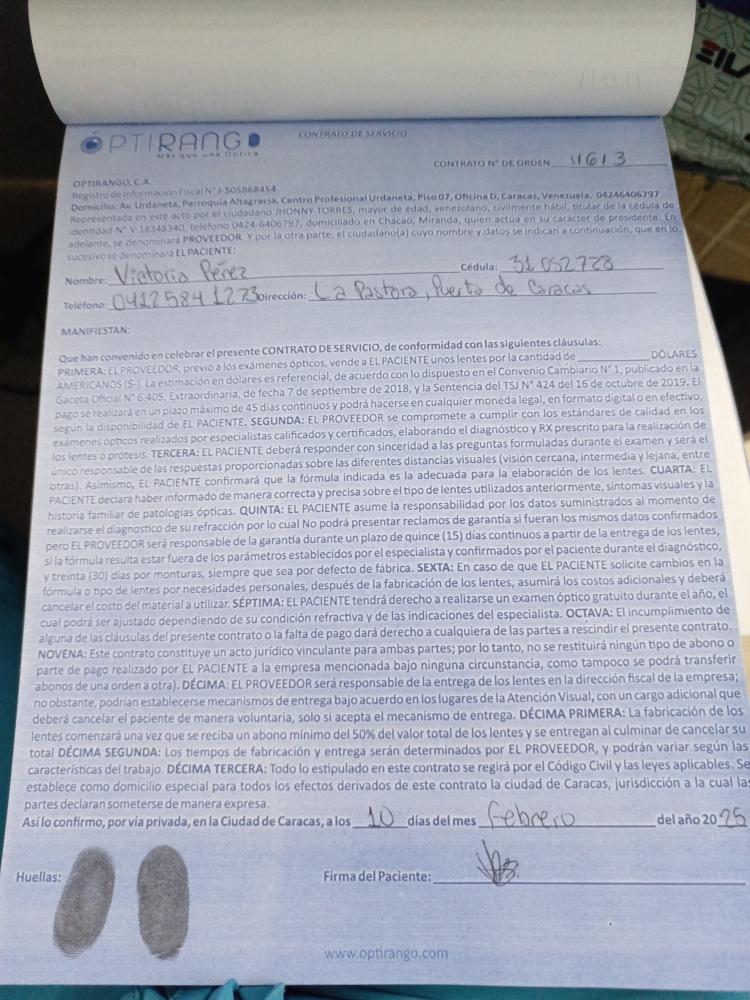 OPTIRANGO
Más que una Óptica
CONTRATO DE SERVICIO
CONTRATO N° DE ORDEN 11613
OPTIRANGO, C.A.
Registro de Información Fiscal N° J-505868454
Domicilio: Av. Urdaneta, Parroquia Altagracia, Centro Profesional Urdaneta, Piso 07, Oficina D, Caracas, Venezuela. 04246406797
Representada en este acto por el ciudadano JHONNY TORRES, mayor de edad, venezolano, civilmente hábil, titular de la cédula de
Identidad N° V-18348340, teléfono 0424-6406797, domiciliado en Chacao, Miranda, quien actúa en su carácter de presidente. En
adelante, se denominará PROVEEDOR. Y por la otra parte, el ciudadano(a) cuyo nombre y datos se indican a continuación, que en lo
sucesivo se denominará EL PACIENTE:
Nombre: Victoria Pérez Cédula: 31 052728
Teléfono: 04125841273 Dirección: La Pastora, Puerta de Caracas
MANIFIESTAN:
Que han convenido en celebrar el presente CONTRATO DE SERVICIO, de conformidad con las siguientes cláusulas:
PRIMERA: EL PROVEEDOR, previo a los exámenes ópticos, vende a EL PACIENTE unos lentes por la cantidad de ____________ DÓLARES
AMERICANOS (S-). La estimación en dólares es referencial, de acuerdo con lo dispuesto en el Convenio Cambiario N° 1, publicado en la
Gaceta Oficial N° 6.405, Extraordinaria, de fecha 7 de septiembre de 2018, y la Sentencia del TSJ N° 424 del 16 de octubre de 2019. El
pago se realizará en un plazo máximo de 45 días continuos y podrá hacerse en cualquier moneda legal, en formato digital o en efectivo,
según la disponibilidad de EL PACIENTE. SEGUNDA: EL PROVEEDOR se compromete a cumplir con los estándares de calidad en los
exámenes ópticos realizados por especialistas calificados y certificados, elaborando el diagnóstico y RX prescrito para la realización de
los lentes o prótesis. TERCERA: EL PACIENTE deberá responder con sinceridad a las preguntas formuladas durante el examen y será el
único responsable de las respuestas proporcionadas sobre las diferentes distancias visuales (visión cercana, intermedia y lejana, entre
otras). Asimismo, EL PACIENTE confirmará que la fórmula indicada es la adecuada para la elaboración de los lentes. CUARTA: EL
PACIENTE declara haber informado de manera correcta y precisa sobre el tipo de lentes utilizados anteriormente, síntomas visuales y la
historia familiar de patologías ópticas. QUINTA: EL PACIENTE asume la responsabilidad por los datos suministrados al momento de
realizarse el diagnostico de su refracción por lo cual No podrá presentar reclamos de garantía si fueran los mismos datos confirmados
pero EL PROVEEDOR será responsable de la garantía durante un plazo de quince (15) días continuos a partir de la entrega de los lentes,
si la fórmula resulta estar fuera de los parámetros establecidos por el especialista y confirmados por el paciente durante el diagnóstico,
y treinta (30) días por monturas, siempre que sea por defecto de fábrica. SEXTA: En caso de que EL PACIENTE solicite cambios en la
fórmula o tipo de lentes por necesidades personales, después de la fabricación de los lentes, asumirá los costos adicionales y deberá
cancelar el costo del material a utilizar. SÉPTIMA: EL PACIENTE tendrá derecho a realizarse un examen óptico gratuito durante el año, el
cual podrá ser ajustado dependiendo de su condición refractiva y de las indicaciones del especialista. OCTAVA: El incumplimiento de
alguna de las cláusulas del presente contrato o la falta de pago dará derecho a cualquiera de las partes a rescindir el presente contrato.
NOVENA: Este contrato constituye un acto jurídico vinculante para ambas partes; por lo tanto, no se restituirá ningún tipo de abono o
parte de pago realizado por EL PACIENTE a la empresa mencionada bajo ninguna circunstancia, como tampoco se podrá transferir
abonos de una orden a otra). DÉCIMA: EL PROVEEDOR será responsable de la entrega de los lentes en la dirección fiscal de la empresa;
no obstante, podrían establecerse mecanismos de entrega bajo acuerdo en los lugares de la Atención Visual, con un cargo adicional que
deberá cancelar el paciente de manera voluntaria, solo si acepta el mecanismo de entrega. DÉCIMA PRIMERA: La fabricación de los
lentes comenzará una vez que se reciba un abono mínimo del 50% del valor total de los lentes y se entregan al culminar de cancelar su
total DÉCIMA SEGUNDA: Los tiempos de fabricación y entrega serán determinados por EL PROVEEDOR, y podrán variar según las
características del trabajo. DÉCIMA TERCERA: Todo lo estipulado en este contrato se regirá por el Código Civil y las leyes aplicables. Se
establece como domicilio especial para todos los efectos derivados de este contrato la ciudad de Caracas, jurisdicción a la cual las
partes declaran someterse de manera expresa.
Así lo confirmo, por vía privada, en la Ciudad de Caracas, a los 10 días del mes febrero del año 2025
Huellas: Firma del Paciente:
www.optirango.com